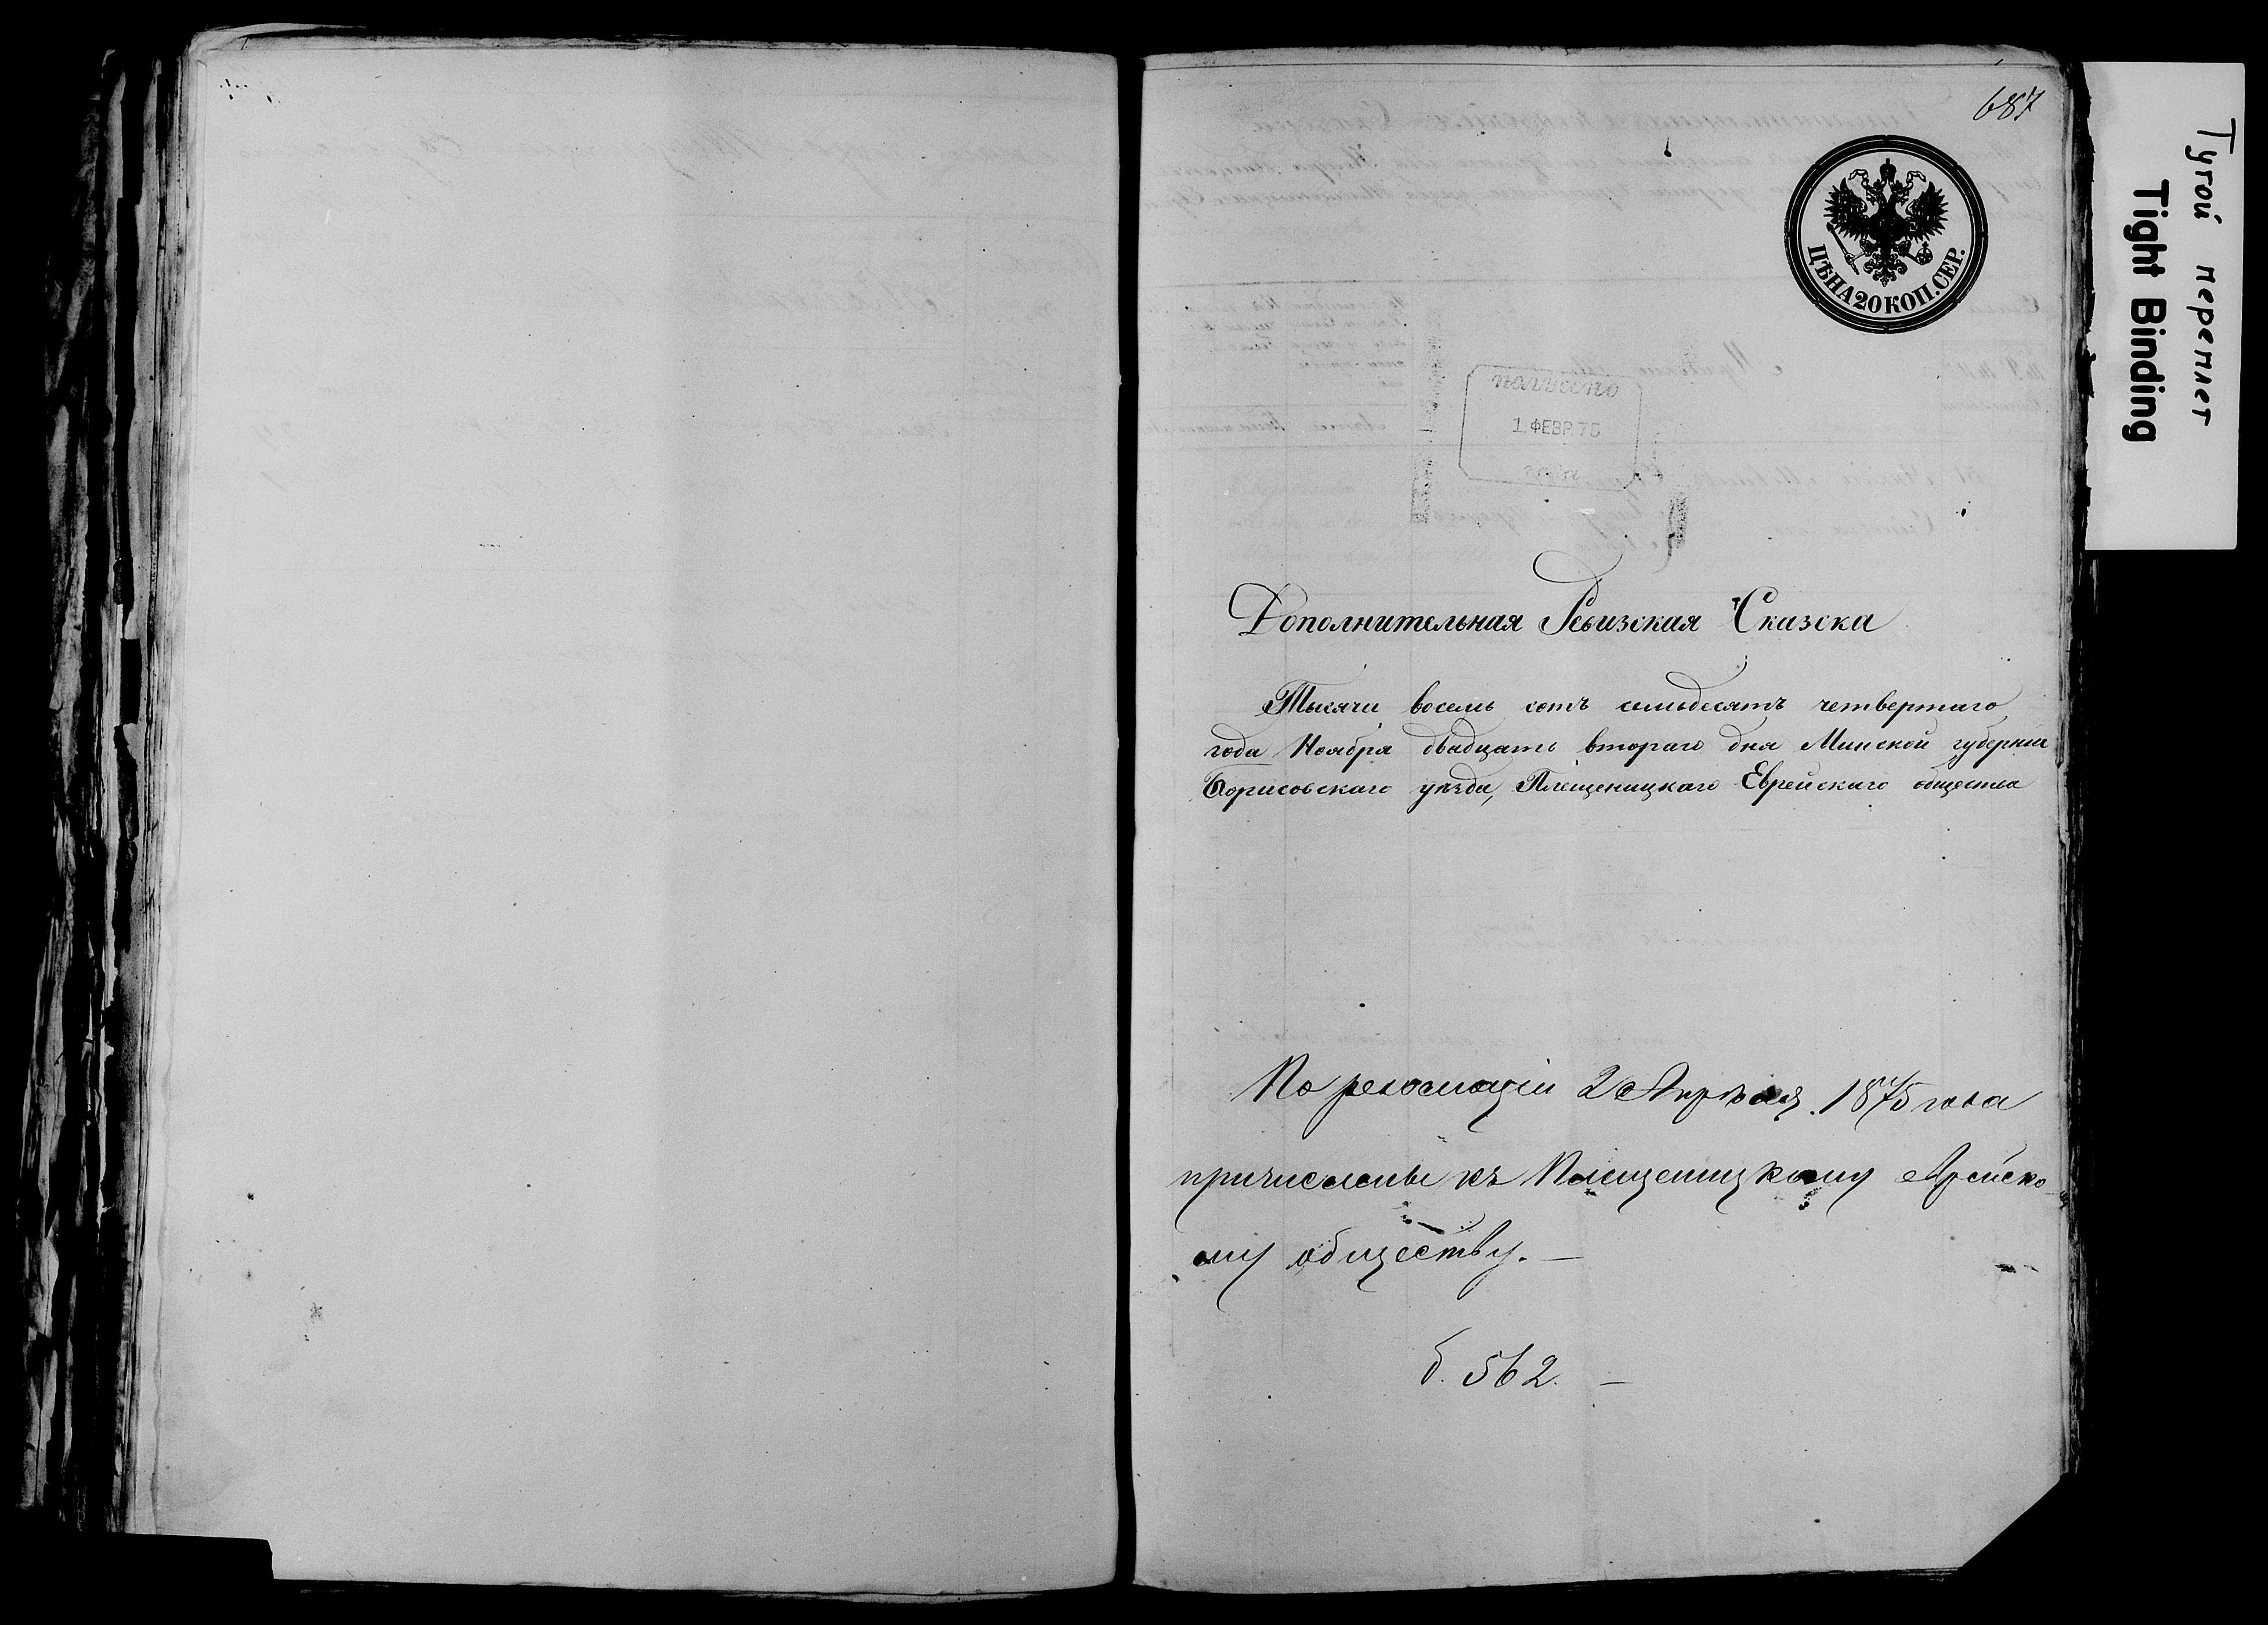 687
ЦѢНА 20 КОП. СЕР.
Тугой переплет
Tight Binding
получено
1 ФЕВР. 75
Дополнительная Ревизская Сказска
Тысячи восемь сотъ семьдесятъ четвертаго
года Ноября двадцать втораго дня Минской губерніи
Борисовскаго уѣзда, Плещеницкаго Еврейскаго общества
По резолюціи 2 Апрѣля 1875 года
причислены къ Плещеницкому еврейско
му обществу. —
б. 562. —